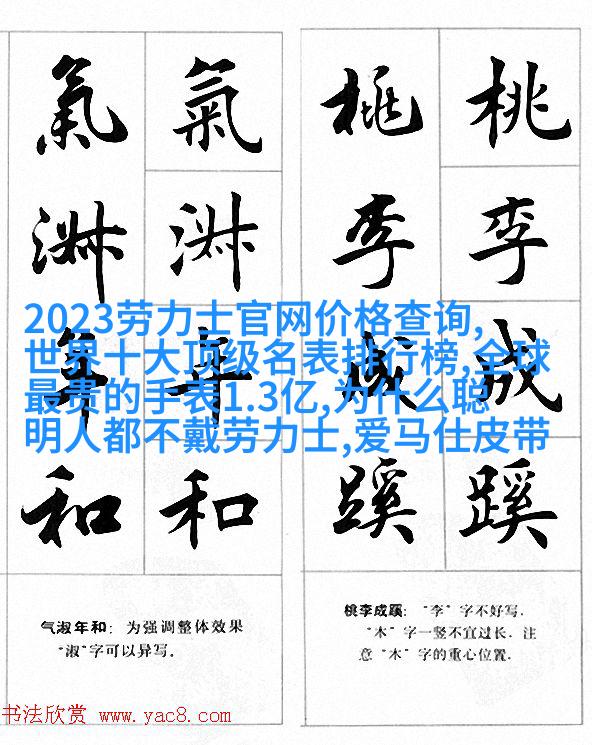 氣 氣 桃 桃
淑 淑 李 李
2023劳力士官网价格查询,
世界十大顶级名表排行榜,全球
最贵的手表1.3亿,为什么聪
明人都不戴劳力士,爱马仕皮带
年 年 成 成
和 和 蹊 蹊
气淑年和：为强调整体效果
“淑”字可以异写。
桃李成蹊：“李”字不好写．
“木”字一竖不宜过长．注
意“木”字的重心位置．
书法欣赏 www.yac8.com